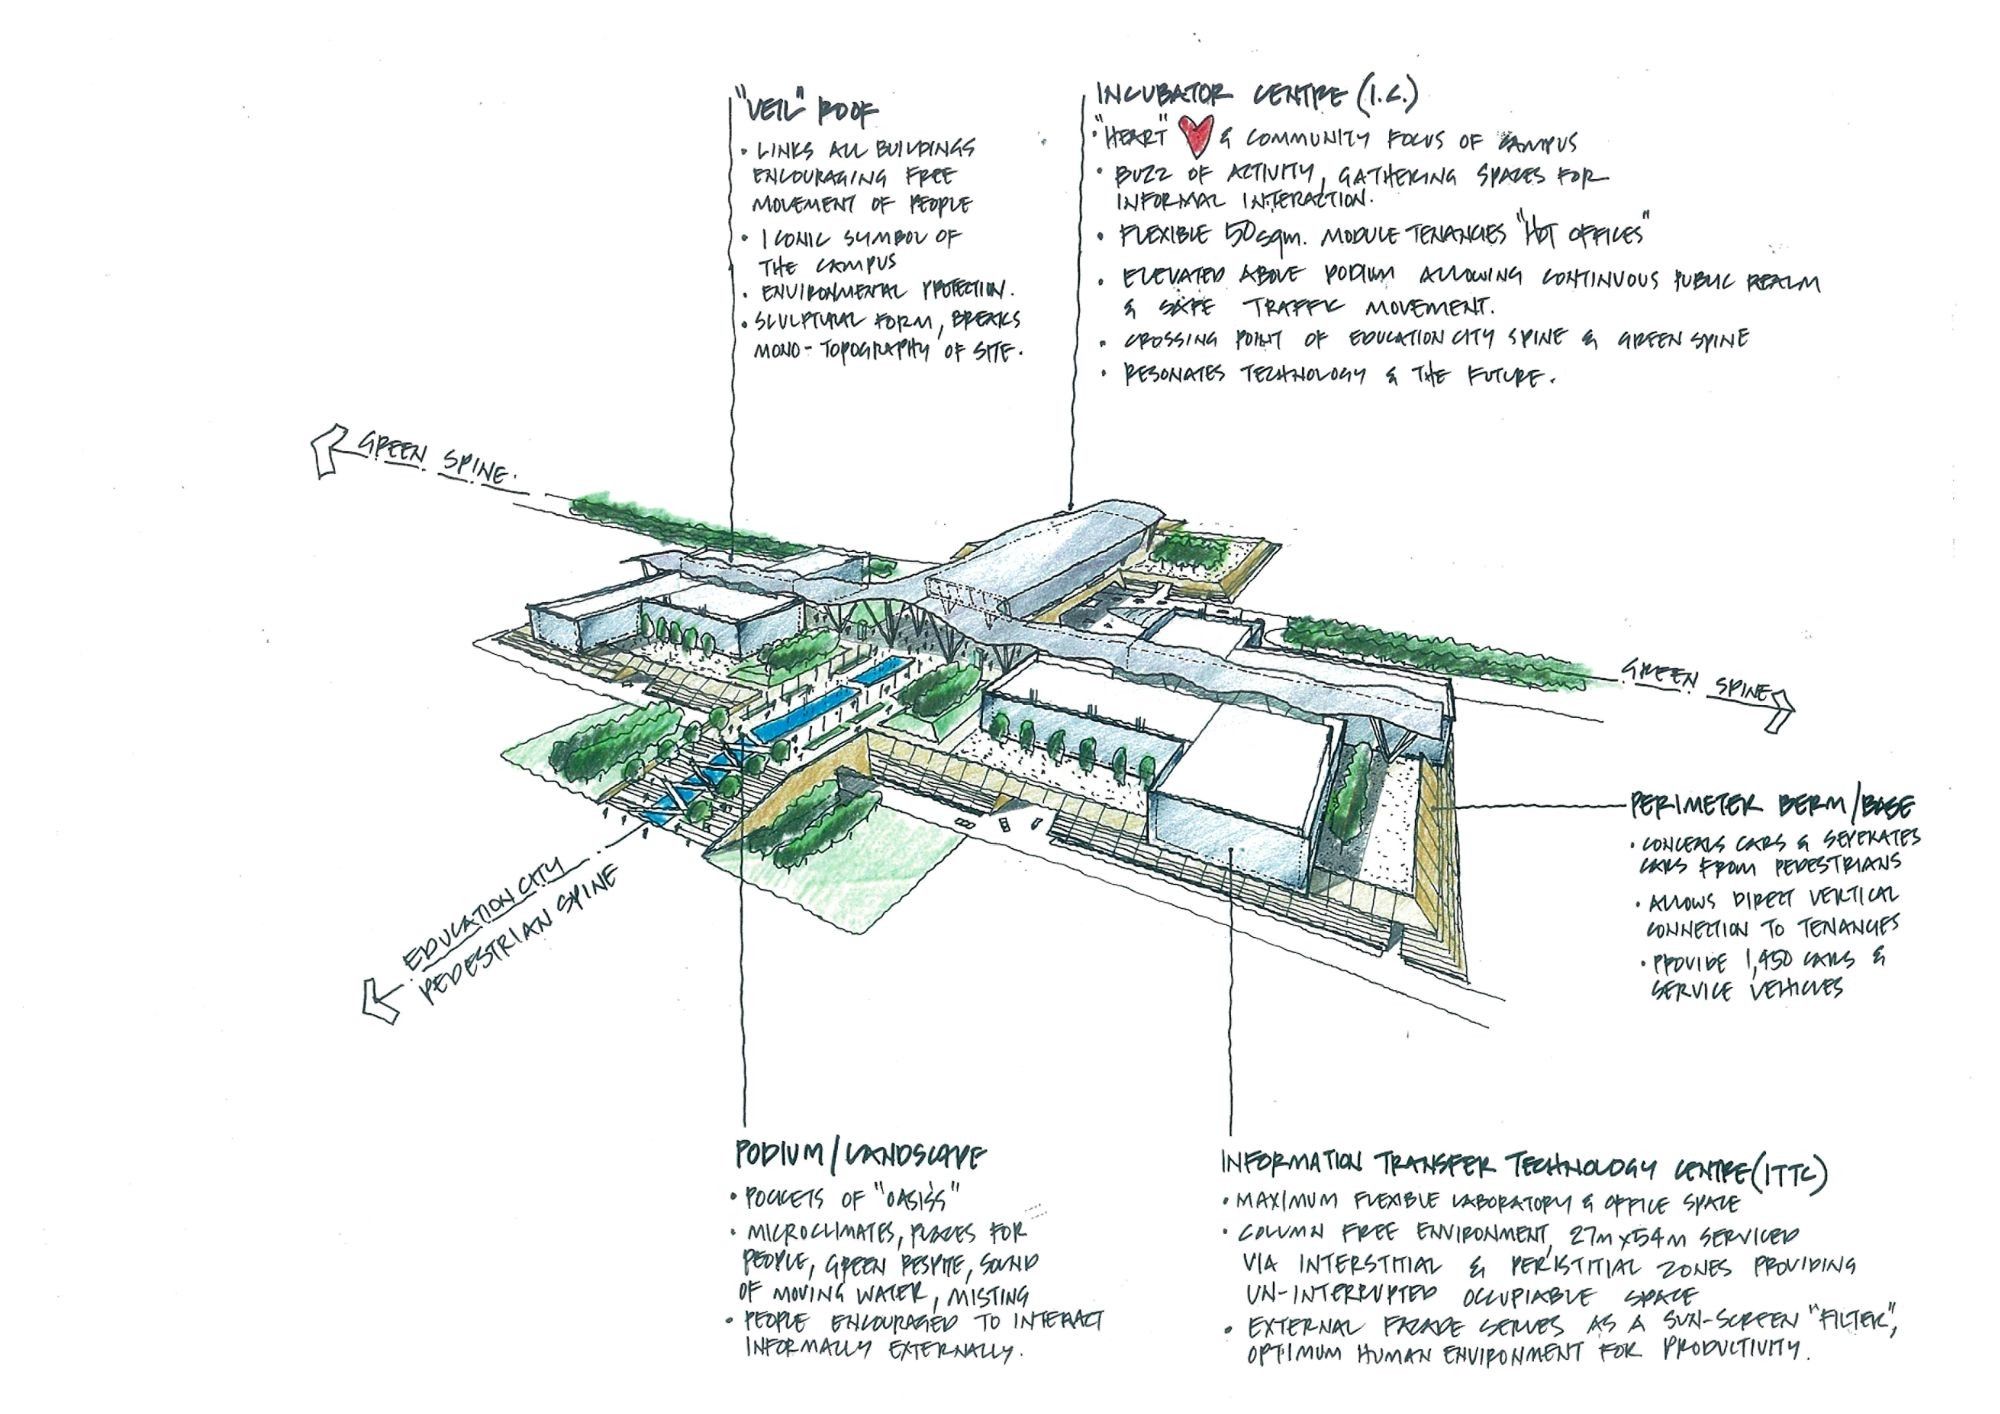 "VEIL" ROOF
• LINKS ALL BUILDINGS
ENCOURAGING FREE
MOVEMENT OF PEOPLE
• ICONIC SYMBOL OF
THE CAMPUS
• ENVIRONMENTAL PROTECTION.
• SCULPTURAL FORM, BREAKS
MONO-TOPOGRAPHY OF SITE.
INCUBATOR CENTRE (I.C.)
• "HEART" & COMMUNITY FOCUS OF CAMPUS
• BUZZ OF ACTIVITY, GATHERING SPACES FOR
INFORMAL INTERACTION.
• FLEXIBLE 50sqm. MODULE TENANCIES "HOT OFFICES"
• ELEVATED ABOVE PODIUM ALLOWING CONTINUOUS PUBLIC REALM
& SAFE TRAFFIC MOVEMENT.
• CROSSING POINT OF EDUCATION CITY SPINE & GREEN SPINE
• RESONATES TECHNOLOGY & THE FUTURE.
GREEN SPINE.
GREEN SPINE
EDUCATION CITY
PEDESTRIAN SPINE
PERIMETER BERM/BASE
• CONCEALS CARS & SEPERATES
CARS FROM PEDESTRIANS
• ALLOWS DIRECT VERTICAL
CONNECTION TO TENANCIES
• PROVIDE 1,950 CARS &
SERVICE VEHICLES
PODIUM/LANDSCAPE
• POCKETS OF "OASIS'S"
• MICROCLIMATES, PLACES FOR
PEOPLE, GREEN RESPITE, SOUND
OF MOVING WATER, MISTING
• PEOPLE ENCOURAGED TO INTERACT
INFORMALLY EXTERNALLY.
INFORMATION TRANSFER TECHNOLOGY CENTRE (ITTC)
• MAXIMUM FLEXIBLE LABORATORY & OFFICE SPACE
• COLUMN FREE ENVIRONMENT, 27m x 54m SERVICED
VIA INTERSTITIAL & PERISTITIAL ZONES PROVIDING
UN-INTERRUPTED OCCUPIABLE SPACE
• EXTERNAL FACADE SERVES AS A SUN-SCREEN "FILTER",
OPTIMUM HUMAN ENVIRONMENT FOR PRODUCTIVITY.